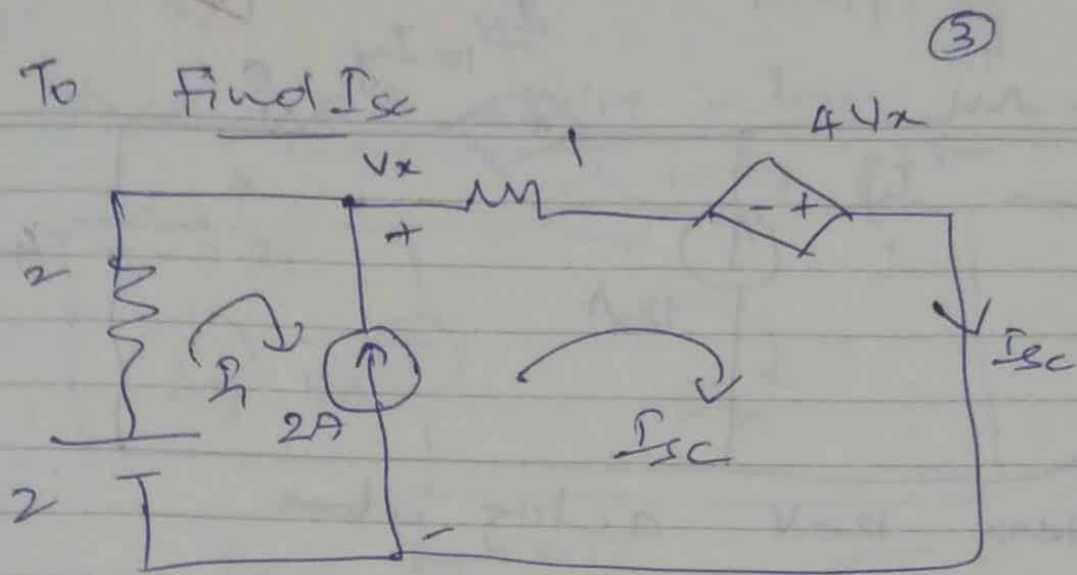 ③
To Find Isc
1
4Vx
Vx
+
- +
2
I1
2A
Isc
Isc
2
-